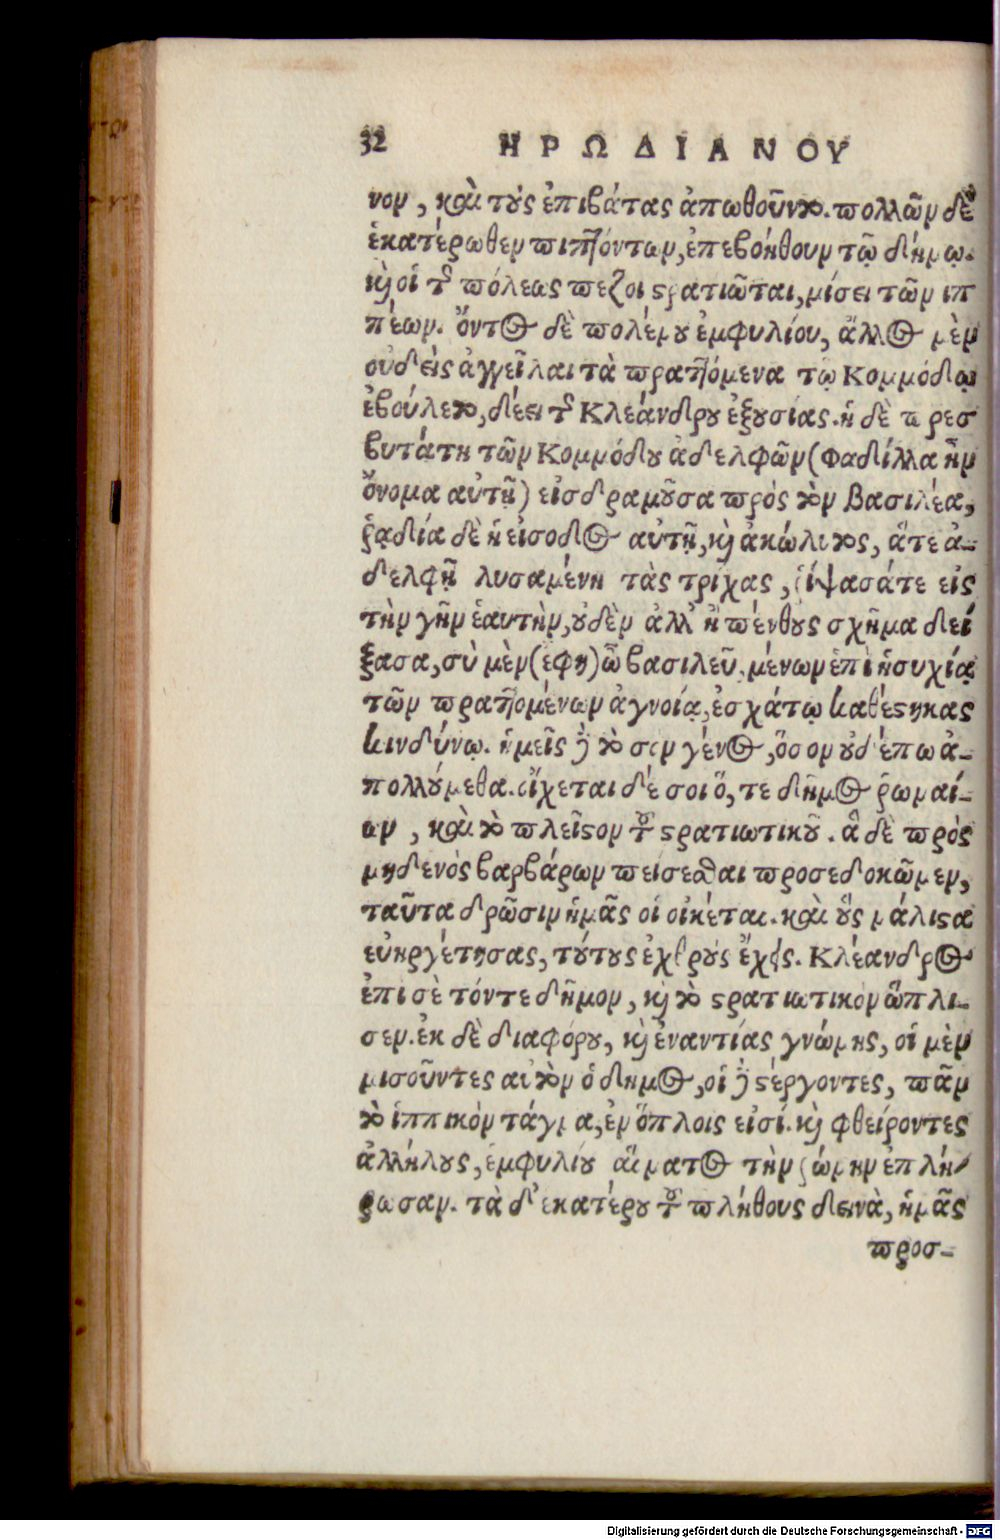 32 ΗΡΩΔΙΑΝΟΥ
νον, καὶ τοὺς ἐπιβάτας ἀπωθοῦντο. πολλῶν δὲ
ἑκατέρωθεν πιπτόντων, ἐπεβοήθουν τῷ δήμῳ.
καὶ οἱ τῆς πόλεως πεζοι στρατιῶται, μίσει τῶν ιπ
πέων. ὄντος δὲ πολέμου ἐμφυλίου, ἄλλος μὲν
οὐδεὶς ἀγγεῖλαι τὰ πραττόμενα τῷ Κομμόδῳ
ἐβούλετο, δέει τῆς Κλεάνδρου ἐξουσίας. ἡ δὲ πρεσ
βυτάτη τῶν Κομμόδου ἀδελφῶν (Φαδίλλα ἦν
ὄνομα αὐτῇ) εἰσδραμοῦσα πρὸς τὸν βασιλέα,
ῥᾳδία δὲ ἡ εἰσοδος αὐτῇ, καὶ ἀκώλυτος, ἅτε ἀ-
δελφῇ λυσαμένη τὰς τρίχας, ῥίψασάτε εἰς
τὴν γῆν ἑαυτὴν, οὐδὲν ἀλλ' ἢ πένθους σχῆμα δεί
ξασα, σὺ μὲν (ἔφη) ὦ βασιλεῦ, μένων ἐπὶ ἡσυχίᾳ
τῶν πραττομένων ἀγνοίᾳ, ἐσχάτῳ καθέστηκας
κινδύνῳ. ἡμεῖς δὲ τὸ σὸν γένος, ὅσον οὐδέπω ἀ-
πολλούμεθα. οἴχεται δέ σοι ὅ, τε δῆμος ῥωμαί-
ων, καὶ τὸ πλεῖστον τοῦ στρατιωτικοῦ. ἃ δὲ πρὸς
μηδενὸς βαρβάρων πείσεσθαι προσεδοκῶμεν,
ταῦτα δρῶσιν ἡμᾶς οἱ οἰκέται. καὶ οὓς μάλιστα
εὐηργέτησας, τούτους ἐχθροὺς ἔχεις. Κλέανδρος
ἐπὶ σὲ τόντε δῆμον, καὶ τὸ στρατιωτικὸν ὥπλι-
σεν. ἐκ δὲ διαφόρου, καὶ ἐναντίας γνώμης, οἱ μὲν
μισοῦντες αὐτὸν ὁ δημος, οἱ δὲ στέργοντες, πᾶν
τὸ ἱππικὸν τάγμα, ἐν ὅπλοις εἰσί. καὶ φθείροντες
ἀλλήλους, ἐμφυλίου αἵματος τὴν ῥώμην ἐπλή-
ρωσαν. τὰ δ' ἑκατέρου τοῦ πλήθους δεινὰ, ἡμᾶς
προσ-
Digitalisierung gefördert durch die Deutsche Forschungsgemeinschaft - DFG